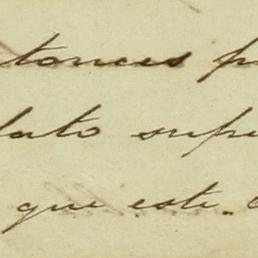 tonces p
lato supe
que este